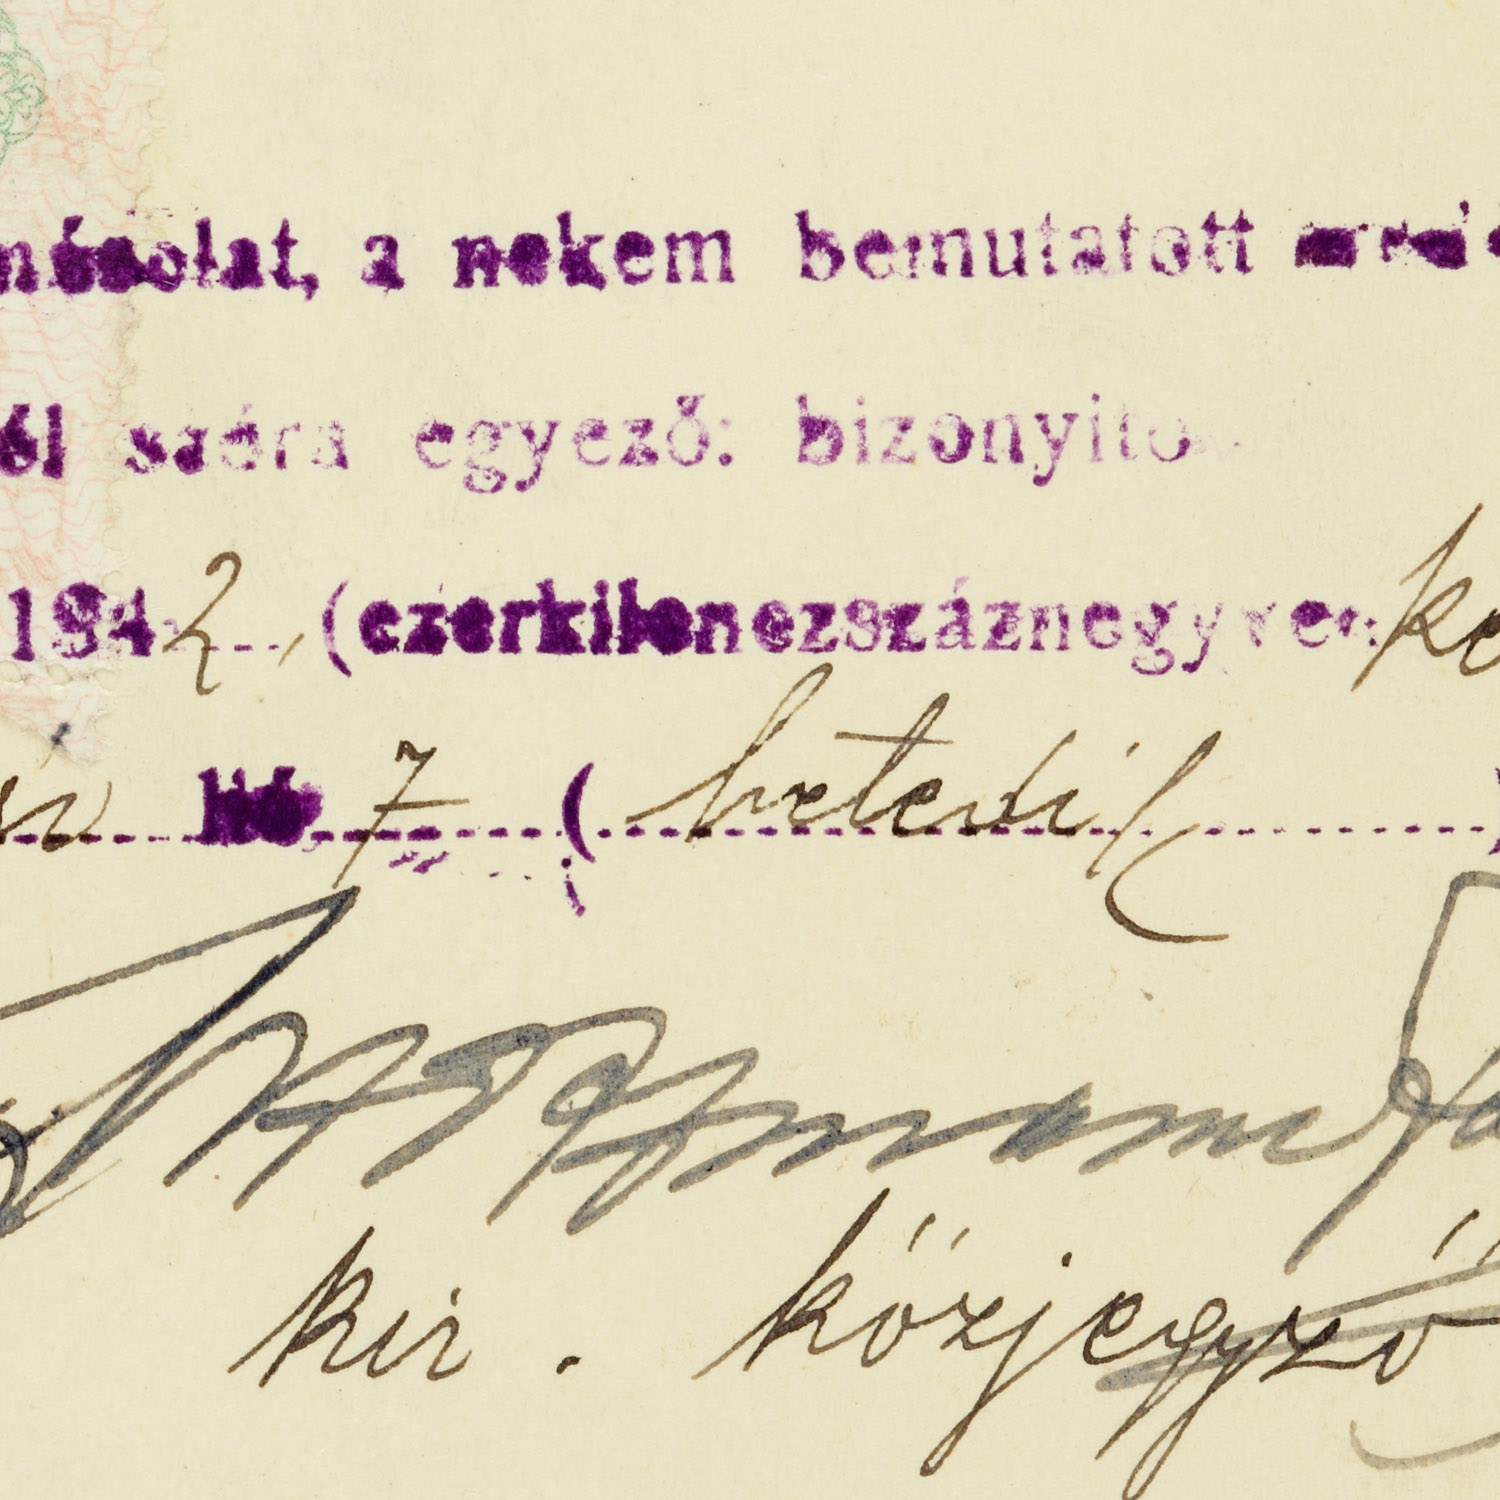 másolat, a nekem bemutatott
ól szóra egyező: bizonyito
1942., (ezerkilenczszáznegyven ke
hó 7 (hetedik
kir. közjegyző